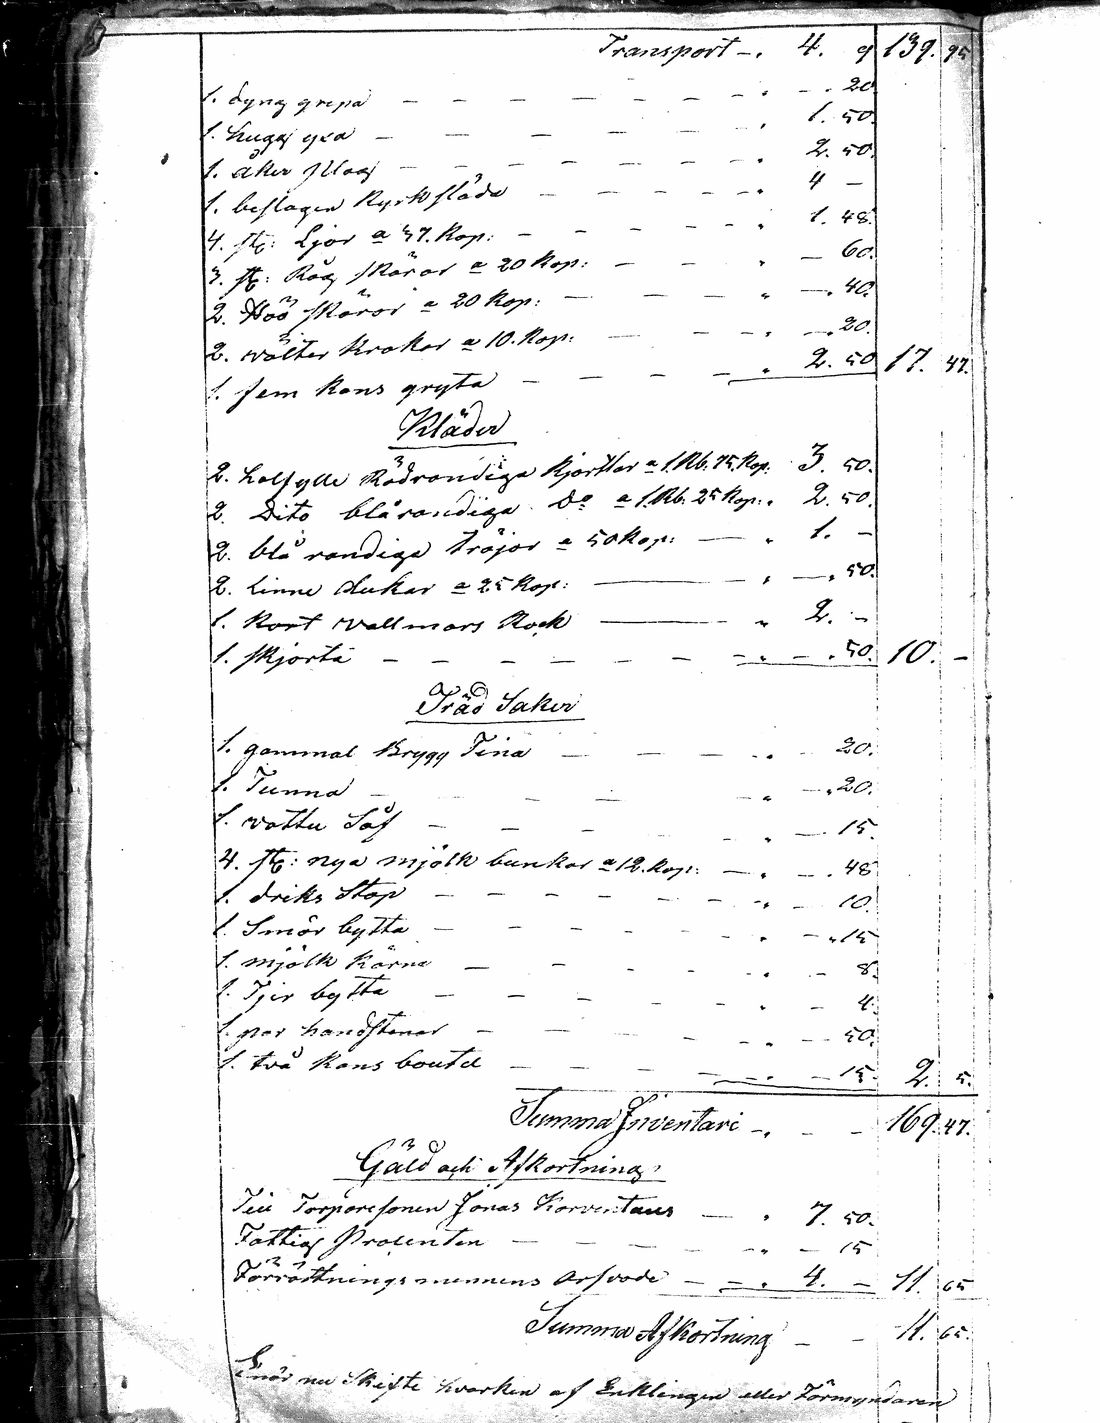 Transport -. 4. 9 139. 95
1. dyng grepa - - - - - - - - " - . 20
1. hugg yxa - - - - - - " 1. 50.
1. åker plog - - - - - - - - " 2. 50.
1. beslagen Kyrk släda - - - - - " 4 -
4. st: Ljor a 37. Kop: - - - - - " 1. 48.
3. st: Råg skäror a 20 Kop: - - - " - 60.
2. Höö skäror a 20 Kop: - - - - " - . 40.
2. wälter Krokar a 10. Kop: - - - " - . 20.
1. fem Kans gryta - - - - - " 2. 50 17. 47.
Kläder
2. halfylle Rödrandiga Kjortlar a 1. Rb. 75. Kop: 3. 50.
2. Dito blårandiga Do a 1. Rb. 25 Kop: " 2. 50.
2. blå randiga tröjor a 50 Kop: - - " 1. -
2. Linne dukar a 25 Kop: - - " - . 50.
1. Kort wallmars Rock - - " 2. -
1. skjorta - - - - - - - - " - . 50. 10. -
Träd Saker
1. gammal Brygg Tina - - - - . " - 20.
1. Tunna - - - - - " - . 20.
1. vattu Såf - - - - - " - 15.
4. st: nya mjölk bunkar a 12. Kop: - " - . 48
1. driks Stop - - - - - - - " - 10.
1. Smör bytta - - - - - - " - . 15
1. mjölk Kärna - - - - - " - 8.
1. Tjer bytta - - - - - - " - 4.
1. par handstenar - - - - - " - 50.
1. två Kans boutel - - - - - - " - 15. 2. 5.
Summa Inventari - . - - 169. 47.
Gäld och Afkortning:
Till Torparesonen Jonas Korventaus - " 7. 50.
Fattig Procenten - - - - - - " - 15
Förrättningsmennens arfvode - - " 4. - 11. 65
Summa Afkortning - - 11. 65.
Enär nu Skifte hvarken af Enklingen eller Förmyndaren